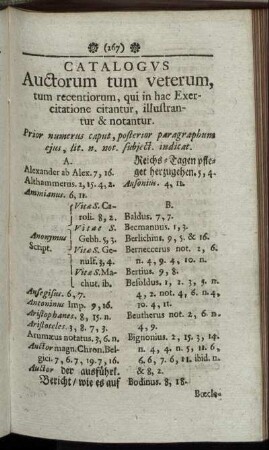 (167)
CATALOGVS
Auctorum tum veterum,
tum recentiorum, qui in hac Exer-
citatione citantur, illustran-
tur & notantur.
Prior numerus caput, posterior paragraphum
ejus, lit. n. not. subject. indicat.
A.
Alexander ab Alex. 7, 16.
Althammerus. 2, 15. 4, 2.
Ammianus. 6, 11.
Anonymus Script.
Vita S. Ca-
roli. 8, 2.
Vitae S.
Gebh. 5, 3.
Vita S. Ge-
nulf. 3, 4.
Vita S. Ma-
chut. ib.
Ansegisus. 6, 7.
Antoninus Imp. 9, 16.
Aristophanes. 8, 15. n.
Aristoteles. 3, 8. 7, 3.
Arumæus notatus. 3, 6. n.
Auctor magn. Chron. Bel-
gici. 7, 6. 7, 19. 7, 16.
Auctor der ausführl.
Bericht / wie es auf
Reichs-Tagen pfle-
get herzugehen. 5, 4.
Ausonius. 4, 11.
B.
Baldus. 7, 7.
Becmannus. 1, 3.
Berlichius. 9, 5. & 16.
Berneccerus not. 1, 6.
n. 4, 9. 4, 10. n.
Bertius. 9, 8.
Besoldus. 1, 2. 3, 5. n.
4, 2. not. 4, 6. n. 4,
10. 4, 11.
Beutherus not. 2, 6. n.
4, 9.
Bignonius. 2, 15. 3, 14.
n. 4, 4. n. 5, 11. 6,
6. 6, 7. 6, 11. ibid. n.
& 8, 2.
Bodinus. 8, 18.
Bœcle-